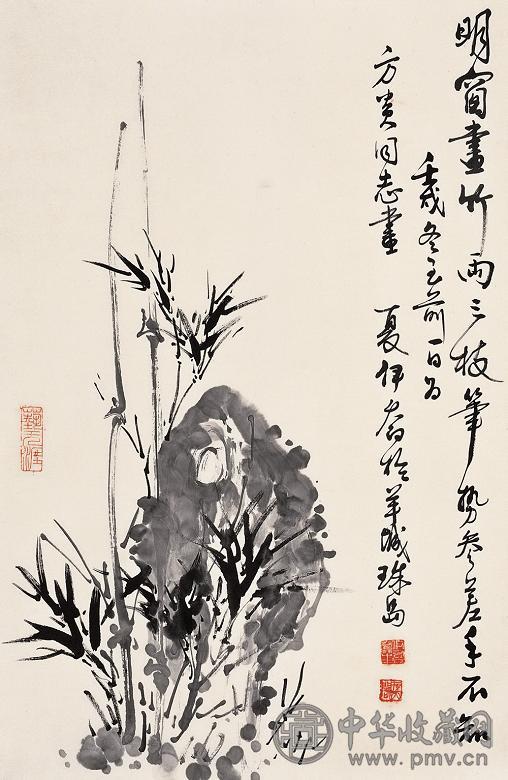 明窗畫竹兩三枝筆勢參差手不知
壬戌冬至前一日为
方贵同志畫 夏伊喬於羊城珠島
中华收藏网
www.pmv.cn